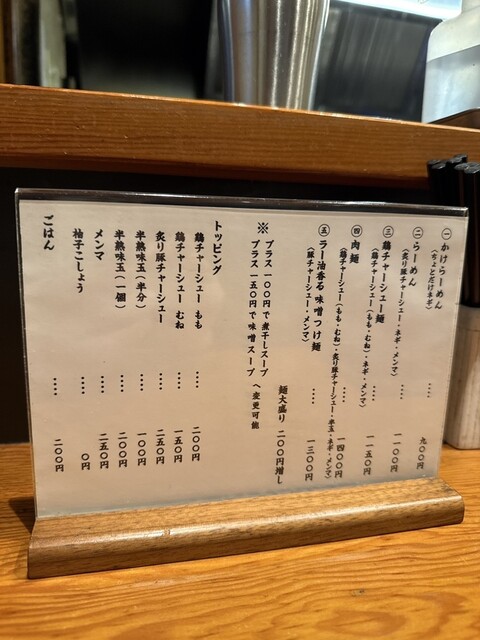 ㊀ かけらーめん ‥‥ 九〇〇円
(ちょとだけネギ)
㊁ らーめん ‥‥ 一一〇〇円
(炙り豚チャーシュー・ネギ・メンマ)
㊂ 鶏チャーシュー麺 ‥‥ 一一五〇円
(鶏チャーシュー(もも・むね)・ネギ・メンマ)
㊃ 肉麺 ‥‥ 一四〇〇円
(鶏チャーシュー(もも・むね)・炙り豚チャーシュー・半玉・ネギ・メンマ)
㊄ ラー油香る 味噌つけ麺 ‥‥ 一三〇〇円
(豚チャーシュー・メンマ)
麺大盛り 二〇〇円増し
※ プラス 一〇〇円で 煮干しスープ
プラス 一五〇円で 味噌スープ へ変更可能
トッピング
鶏チャーシュー もも ‥‥ 二〇〇円
鶏チャーシュー むね ‥‥ 一五〇円
炙り豚チャーシュー ‥‥ 二五〇円
半熟味玉(半分) ‥‥ 一〇〇円
半熟味玉(一個) ‥‥ 二〇〇円
メンマ ‥‥ 二五〇円
柚子こしょう ‥‥ 〇円
ごはん ‥‥ 二〇〇円